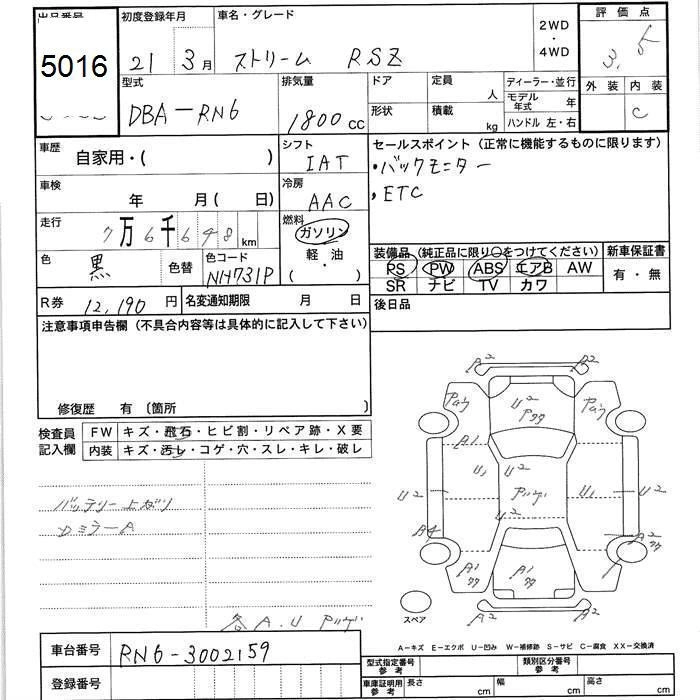 出品番号
5016
初度登録年月
21 3月
車名・グレード
ストリーム RSZ
2WD
・
4WD
評価点
3.5
外装 内装
C
型式
DBA-RN6
排気量
1800cc
ドア
形状
定員
人
積載
kg
ディーラー・並行
モデル年式 年
ハンドル 左・右
車歴
自家用・( )
シフト
IAT
セールスポイント (正常に機能するものに限ります)
・バックモニター
・ETC
車検
年 月( 日)
冷房
AAC
走行
7万6千648km
燃料
ガソリン
軽・油
( )
色
黒
色替
色コード
NH731P
装備品 (純正品に限り○をつけてください)
PS PW ABS エアB AW
SR ナビ TV カワ
新車保証書
有・無
R券 12,190円
名変通知期限 月 日
後日品
注意事項申告欄 (不具合内容等は具体的に記入して下さい)
修復歴 有 〔箇所 〕
検査員
記入欄
FW キズ・飛石・ヒビ割・リペア跡・X要
内装 キズ・汚レ・コゲ・穴・スレ・キレ・破レ
バッテリー上がり
Dミラー A
各A.U アツゲ
A2 A2
U2
A1
U1 U2
U2 U1 U2
アツゲ
U2
A4 A2
A1 A1 A2
A2 A2
スペア
A-キズ E-エクボ U-凹み W-補修跡 S-サビ C-腐食 XX-交換済
車台番号 RN6-3002159
登録番号
型式指定番号
参考
類別区分番号
参考
車庫証明用
参考
長さ cm
幅 cm
高さ cm